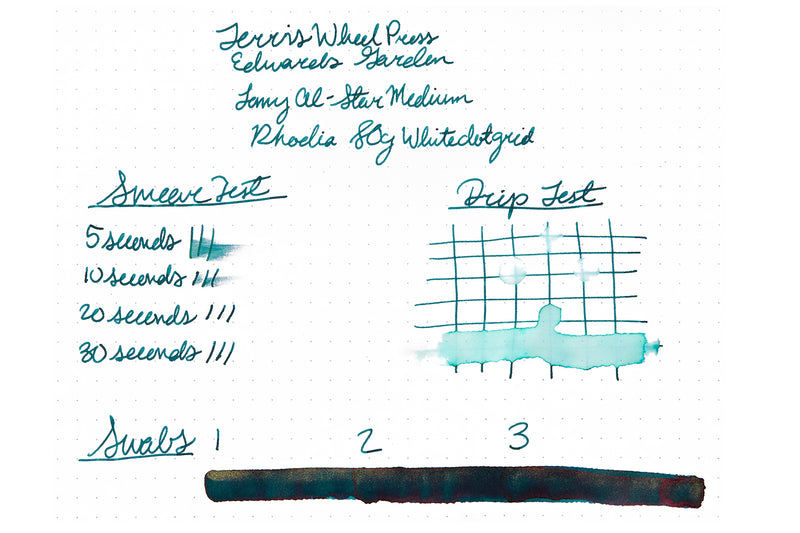 Ferris Wheel Press
Edwards Garden
Lamy Al-Star Medium
Rhodia 80g White dot grid
Smear Test
5 seconds
10 seconds
20 seconds
30 seconds
Drip Test
Swabs 1 2 3